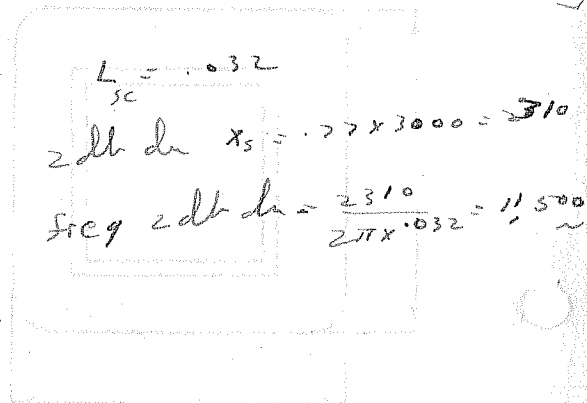 L_sc = .032
2 db dn X_s = .77 x 3000 = 2310
freq 2 db dn = 2310 / 2π x .032 = 11,500 ~